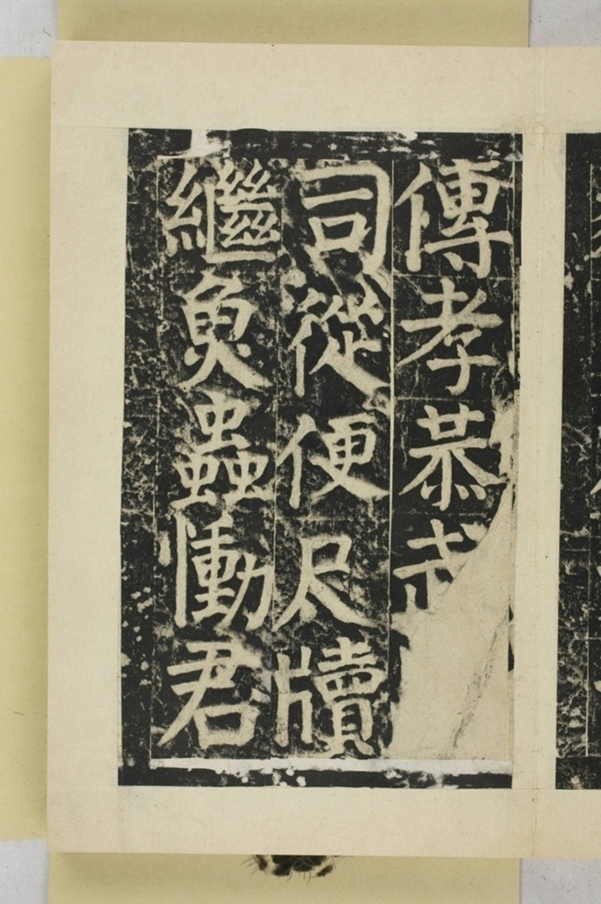 傳孝恭
司從便尺牘
繼魚蟲慟君